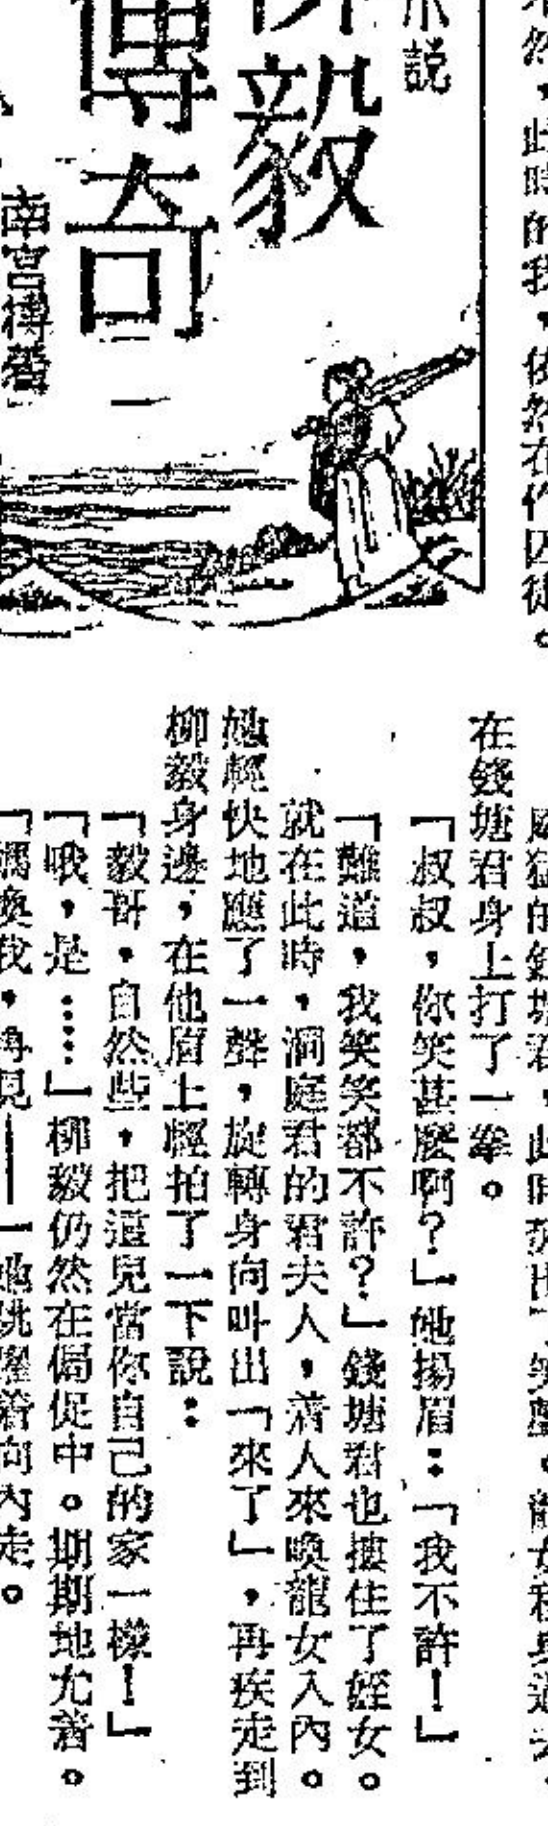 然，此時的我，依然在作囚徒。
小説
毅
傳奇
南宮搏著
在錢塘君身上打了一拳。
「叔叔，你笑甚麼啊？」她揚眉：「我不許！」
「難道，我笑笑都不許？」錢塘君也摟住了姪女。
就在此時，洞庭君的君夫人，着人來喚龍女入內。
她輕快地應了一聲，旋轉身向叫出「來了」，再疾走到
柳毅身邊，在他眉上輕拍了一下說：
「毅哥，自然些，把這兒當你自己的家一樣！」
「哦，是……」柳毅仍然在侷促中。期期地允着。
我，再見——」她跳躍着向內走。